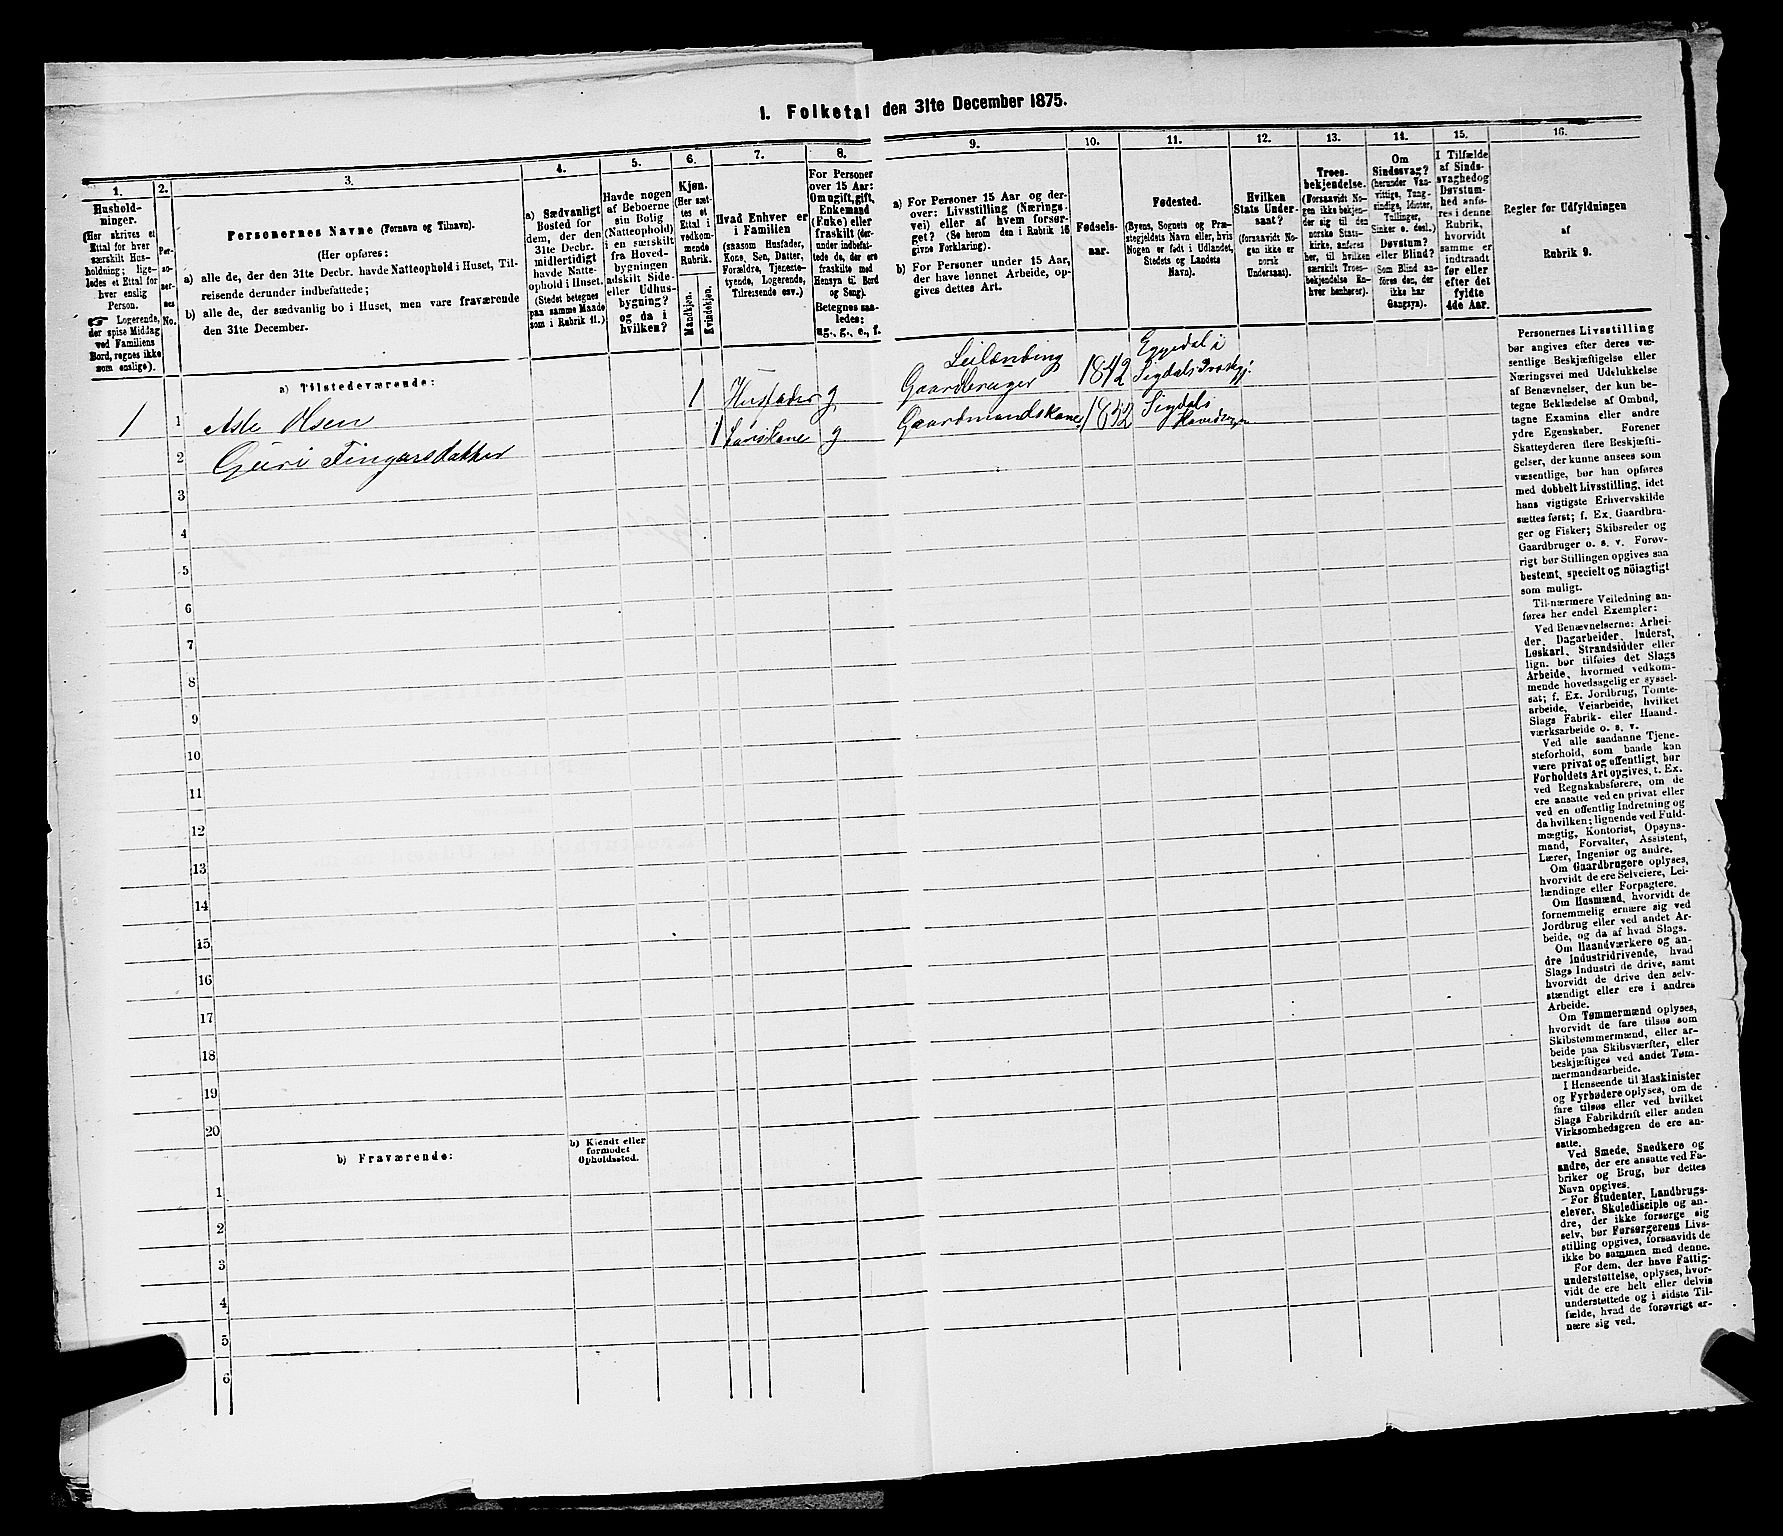 1. Folketal den 31te December 1875.
1.
2.
3.
4.
5.
6.
7.
8.
9.
10.
11.
12.
13.
14.
15.
16.
Hushold-
ninger.
(Her skrives et
Ettal for hver
særskilt Hus-
holdning; lige-
ledes et Ettal for
hver enslig
Person.
☞ Logerende,
der spise Middag
ved Familiens
Bord, regnes ikke
som enslige).
Per-
so-
ner-
nes
No.
Personernes Navne (Fornavn og Tilnavn).
(Her opføres:
a) alle de, der den 31te Decbr. havde Natteophold i Huset, Til-
reisende derunder indbefattede;
b) alle de, der sædvanlig bo i Huset, men vare fraværende
den 31te December.
a) Sædvanligt
Bosted for
dem, der den
31te Decbr.
midlertidigt
havde Natte-
ophold i Huset.
(Stedet betegnes
paa samme Maade
som i Rubrik 11.)
Havde nogen
af Beboerne
sin Bolig
(Natteophold)
i en særskilt
fra Hoved-
bygningen
adskilt Side-
eller Udhus-
bygning?
og da i
hvilken?
Kjøn.
(Her sæt-
tes et
Ettal i
vedkom-
mende
Rubrik.
Mandkjøn.
Kvindekjøn.
Hvad Enhver er
i Familien
(saasom Husfader,
Kone, Søn, Datter,
Forældre, Tjeneste-
tyende, Logerende,
Tilreisende osv.)
For Personer
over 15 Aar:
Om ugift, gift,
Enkemand
(Enke) eller
fraskilt (der-
under indbefat-
tede de, der ere
fraskilte med
Hensyn til Bord
og Seng).
Betegnes saa-
ledes:
ug., g., e., f.
a) For Personer 15 Aar og der-
over: Livsstilling (Nærings-
vei) eller af hvem forsør-
get? (Se herom den i Rubrik 16
givne Forklaring).
b) For Personer under 15 Aar,
der have lønnet Arbeide, op-
gives dettes Art.
Fødsels-
aar.
Fødested.
(Byens, Sognets og Præ-
stegjeldets Navn eller, hvis
Nogen er født i Udlandet,
Stedets og Landets
Navn).
Hvilken
Stats Under-
saat?
(forsaavidt No-
gen ikke er
norsk
Undersaat).
Troes-
bekjendelse.
(Forsaavidt No-
gen ikke bekjen-
der sig til den
norske Stats-
kirke, anføres
her, til hvilken
særskilt Troes-
bekjendelse En-
hver henhører).
Om
Sindssvag?
(herunder Van-
vittige, Tung-
sindige, Idioter,
Tullinger,
Sinker o. desl.)
Døvstum?
eller Blind?
(Som Blind an-
føres den, der
ikke har
Gangsyn).
I Tilfælde
af Sinds-
svaghed og
Døvstum-
hed anfø-
res i denne
Rubrik,
hvorvidt
samme er
indtraadt
før eller
efter det
fyldte
4de Aar.
Regler for Udfyldningen
af
Rubrik 9.
a) Tilstedeværende:
1 1 Asle Olsen 1 Husfader g Leilænding Gaardbruger 1842 Eggedal i Sigdals Præstgj:
2 Guri Fingarsdatter 1 hans Kone g Gaardmandskone 1852 Sigdals
3
4
5
6
7
8
9
10
11
12
13
14
15
16
17
18
19
20
b) Fraværende:
b) Kjendt eller
formodet
Opholdssted.
1
2
3
4
5
6
Personernes Livsstilling
bør angives efter deres væ-
sentlige Beskjæftigelse eller
Næringsvei med Udelukkelse
af Benævnelser, der kun be-
tegne Beklædelse af Ombud,
tagne Examina eller andre
ydre Egenskaber. Forener
Skatteyderen flere Beskjæfti-
gelser, der kunne ansees som
væsentlige, bør han opføres
med dobbelt Livsstilling, idet
hans vigtigste Erhvervskilde
sættes først; f. Ex. Gaardbru-
ger og Fisker; Skibsreder og
Gaardbruger o. s. v. Forøv-
rigt bør Stillingen opgives saa
bestemt, specielt og nöiagtigt
som muligt.
Til nærmere Veiledning an-
føres her endel Exempler:
Ved Benævnelserne: Arbei-
der, Dagarbeider, Inderst,
Løskarl, Strandsidder eller
lign. bør tilføies det Slags
Arbeide, hvormed vedkom-
mende hovedsagelig er syssel-
sat; f. Ex. Jordbrug, Tomte-
arbeide, Veiarbeide, hvilket
Slags Fabrik- eller Haand-
værksarbeide o. s. v.
Ved alle saadanne Tjene-
steforhold, som baade kan
være privat og offentligt, bør
Forholdets Art opgives, t. Ex.
ved Regnskabsførere, om de
ere ansatte ved en privat eller
ved en offentlig Indretning og
da hvilken; lignende ved Fuld-
mægtig, Kontorist, Opsyns-
mand, Forvalter, Assistent,
Lærer, Ingeniør og andre.
Om Gaardbrugere oplyses,
hvorvidt de ere Selveiere, Lei-
lændinge eller Forpagtere.
Om Husmænd, hvorvidt de
fornemmelig ernære sig ved
Jordbrug eller ved andet Ar-
beide, og da af hvad Slags.
Om Haandværkere og an-
dre Industridrivende, hvad
Slags Industri de drive, samt
hvorvidt de drive den selv-
stændigt eller ere i andres
Arbeide.
Om Tømmermænd oplyses,
hvorvidt de fare tilsøs som
Skibstømmermænd, eller ar-
beide paa Skibsværfter, eller
beskjæftiges ved andet Tøm-
mermandsarbeide.
I Henseende til Maskinister
og Fyrbødere oplyses, om de
fare tilsøs eller ved hvilket
Slags Fabrikdrift eller anden
Virksomhedsgren de ere an-
satte.
Ved Smede, Snedkere og
andre, der ere ansatte ved Fa-
briker og Brug, bør dettes
Navn opgives.
For Studenter, Landbrugs-
elever, Skoledisciple og an-
dre, der ikke forsørge sig
selv, bør Forsørgerens Livs-
stilling opgives, forsaavidt de
ikke bo sammen med denne.
For dem, der have Fattig-
understøttelse, oplyses, hvor-
vidt de ere helt eller delvis
understøttede og i sidste Til-
fælde, hvad de forøvrigt er-
nære sig ved.